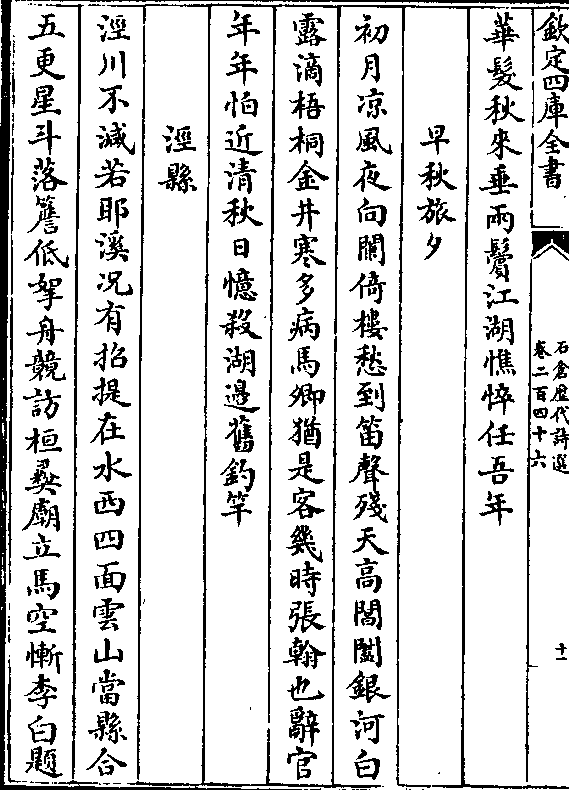 欽定四庫全書
石倉歷代詩選
卷二百四十六
十一
華髮秋來垂兩鬢江湖憔悴任吾年
早秋旅夕
初月凉風夜向闌倚樓愁到笛聲殘天高閶闔銀河白
露滴梧桐金井寒多病馬卿猶是客幾時張翰也辭官
年年怕近清秋日憶殺湖邉舊釣竿
涇縣
涇川不減若耶溪况有招提在水西四面雲山當縣合
五更星斗落簷低拏舟競訪桓彝廟立馬空慚李白題